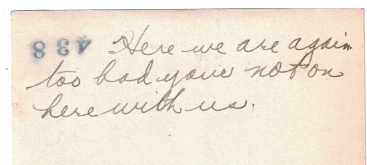 438 Here we are again
too bad your not on
here with us.